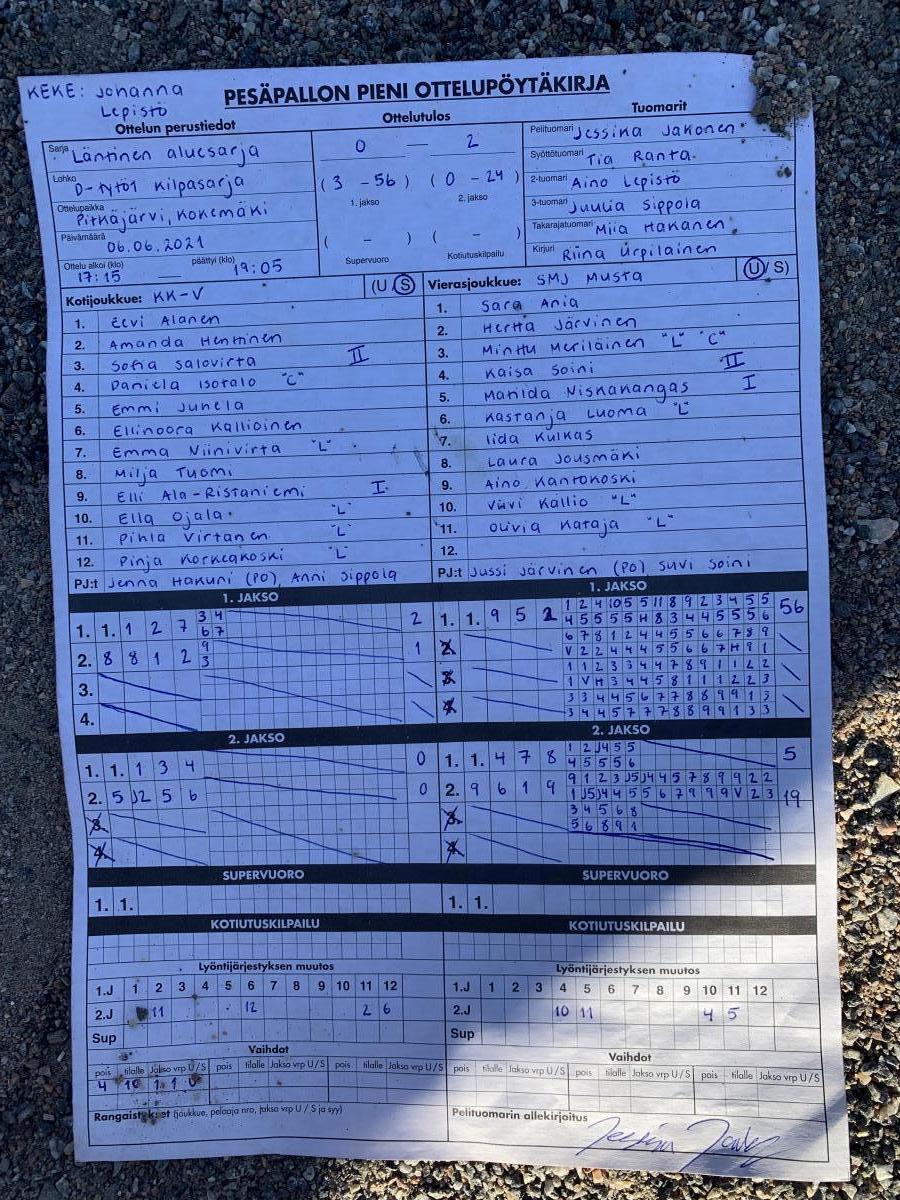 KEKE: Johanna
Lepistö
PESÄPALLON PIENI OTTELUPÖYTÄKIRJA
Ottelun perustiedot
Ottelutulos
Tuomarit
Sarja Läntinen aluesarja
Lohko D-tytöt Kilpasarja
Ottelupaikka Pitkäjärvi, Kokemäki
Päivämäärä 06.06.2021
Ottelu alkoi (klo) 17:15 — päättyi (klo) 19:05
0 — 2
(3 - 56) (0 - 24)
1. jakso 2. jakso
( - ) ( - )
Supervuoro Kotiutuskilpailu
Pelituomari Jessika Jakonen
Syöttötuomari Tia Ranta
2-tuomari Aino Lepistö
3-tuomari Juulia Sippola
Takarajatuomari Miia Hakanen
Kirjuri Riina Urpilainen
Kotijoukkue: KK-V (U S)
1. Eevi Alanen
2. Amanda Henttinen
3. Sofia Salovirta II
4. Daniela Isotalo "C"
5. Emmi Junela
6. Ellinoora Kallioinen
7. Emma Niinivirta "L"
8. Milja Tuomi
9. Elli Ala-Ristaniemi I
10. Ella Ojala "L"
11. Pihla Virtanen "L"
12. Pinja Korkeakoski "L"
PJ:t Jenna Hakuni (PO), Anni Sippola
Vierasjoukkue: SMJ Musta (U/S)
1. Sara Ania
2. Hertta Järvinen
3. Minttu Meriläinen "L" "C"
4. Kaisa Soini II
5. Matilda Niskakangas I
6. Kastanja Luoma "L"
7. Iida Kulkas
8. Laura Jousmäki
9. Aino Kantokoski
10. Viivi Kallio "L"
11. Olivia Kataja "L"
12.
PJ:t Jussi Järvinen (PO), Suvi Soini
1. JAKSO
1. 1. 1 2 7 3 4 2
6 7
2. 8 8 1 2 9 1
3
3.
4.
1. JAKSO
1. 1. 9 5 2 1 2 4 10 5 5 11 8 9 2 3 4 5 5 56
4 5 5 5 5 H 8 3 4 4 5 5 5 6
2. 6 7 8 1 2 4 4 5 5 6 6 7 8 9
V 2 2 4 4 4 5 5 6 6 7 H 9 1
3. 1 1 2 3 3 4 4 7 8 9 1 1 2 2
1 V H 3 4 4 5 8 1 1 1 2 2 3
4. 3 3 4 4 5 6 7 7 8 8 9 9 1 3
3 4 4 5 7 7 7 8 8 9 9 1 3 3
2. JAKSO
1. 1. 1 3 4 0
2. 5 J2 5 6 0
3.
4.
2. JAKSO
1. 1. 4 7 8 1 2 J4 5 5 5
4 5 5 5 6
2. 9 6 1 9 9 1 2 3 J5 J4 4 5 7 8 9 9 2 2 19
1 J5 J4 4 5 5 6 7 9 9 9 V 2 3
3. 3 4 5 6 8
5 6 8 9 1
4.
SUPERVUORO
1. 1.
SUPERVUORO
1. 1.
KOTIUTUSKILPAILU
KOTIUTUSKILPAILU
Lyöntijärjestyksen muutos
1.J 1 2 3 4 5 6 7 8 9 10 11 12
2.J 11 12 2 6
Sup
Lyöntijärjestyksen muutos
1.J 1 2 3 4 5 6 7 8 9 10 11 12
2.J 10 11 4 5
Sup
Vaihdot
pois tilalle Jakso vrp U/S pois tilalle Jakso vrp U/S pois tilalle Jakso vrp U/S
4 10 1 1 U
Vaihdot
pois tilalle Jakso vrp U/S pois tilalle Jakso vrp U/S pois tilalle Jakso vrp U/S
Rangaistukset (joukkue, pelaaja nro, jakso vrp U/S ja syy)
Pelituomarin allekirjoitus